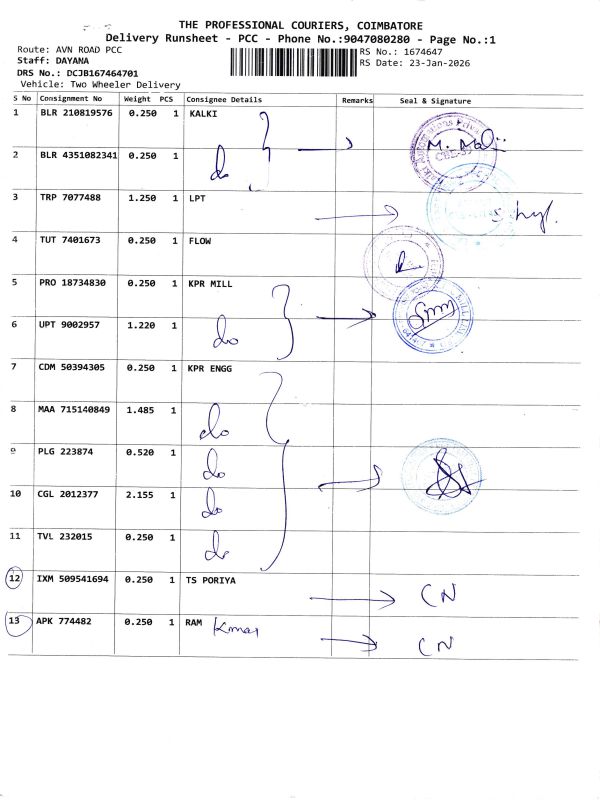 THE PROFESSIONAL COURIERS, COIMBATORE
Delivery Runsheet - PCC - Phone No.:9047080280 - Page No.:1
Route: AVN ROAD PCC
RS No.: 1674647
Staff: DAYANA
RS Date: 23-Jan-2026
DRS No.: DCJB167464701
Vehicle: Two Wheeler Delivery
S No Consignment No Weight PCS Consignee Details Remarks Seal & Signature
1 BLR 210819576 0.250 1 KALKI
2 BLR 4351082341 0.250 1 do
3 TRP 7077488 1.250 1 LPT
4 TUT 7401673 0.250 1 FLOW
5 PRO 18734830 0.250 1 KPR MILL
6 UPT 9002957 1.220 1 do
7 CDM 50394305 0.250 1 KPR ENGG
8 MAA 715140849 1.485 1 do
9 PLG 223874 0.520 1 do
10 CGL 2012377 2.155 1 do
11 TVL 232015 0.250 1 do
12 IXM 509541694 0.250 1 TS PORIYA CN
13 APK 774482 0.250 1 RAM Kmar CN